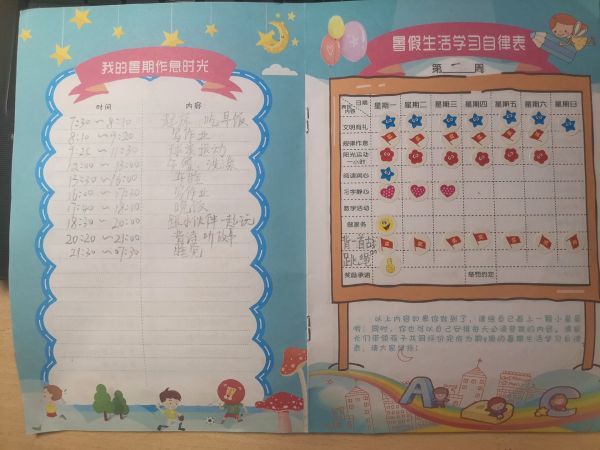 我的暑期作息时光
时间 内容
7:30～8:10 起床 吃早饭
8:10～9:20 写作业
9:25～11:30
12:00～15:00 午休
15:30～16:00
16:00～17:20 写作业
17:40～18:10 晚饭
18:30～20:00 跟小伙伴一起玩
20:20～21:00 背诗 听故事
21:30～07:30 睡觉
暑假生活学习自律表
第一周
日期 星期一 星期二 星期三 星期四 星期五 星期六 星期日
内容
文明有礼
规律作息
阳光运动
一小时
阅读润心
习字静心
数学活动
做家务
背一首古诗
跳绳
奖励承诺
以上内容如果你做到了，请给自己画上一颗小星星
哦！同时，你也可以自己安排每天必须要做的内容。请家
长们带领孩子共同评价完成为期9周的暑期生活学习自律
表，请大家坚持！
A C